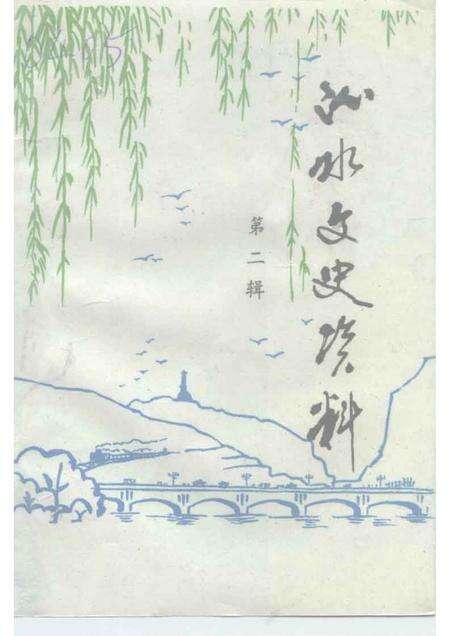 沁水文史资料
第二辑